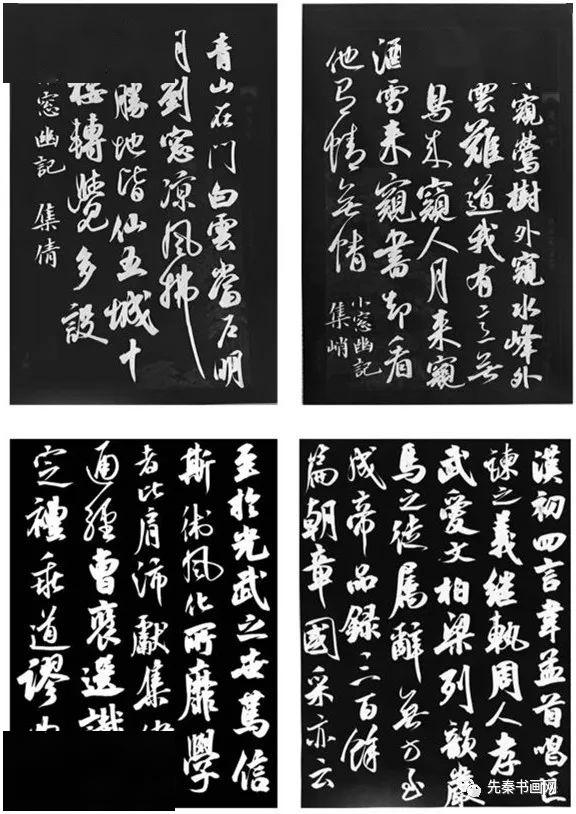 青山在門白雲當户明
月到窓凉風拂
勝地皆仙五城十
樓轉覺多設
窓幽記 集倩
窺鶯樹外窺水峰外
雲難道我有意無
鳥来窺人月来窺
酒雪来窺書却看
他有情無情
小窓幽記
集峭
至於光武之世篤信
斯術風化所靡學
者比肩沛獻集
通經曹褒選讖
定禮乖道謬
漢初四言韋孟首唱匡
諫之義繼軌周人孝
武愛文柏梁列韻嚴
馬之徒屬辭無方至
成帝品錄三百餘
篇朝章國采亦云
先秦书画网